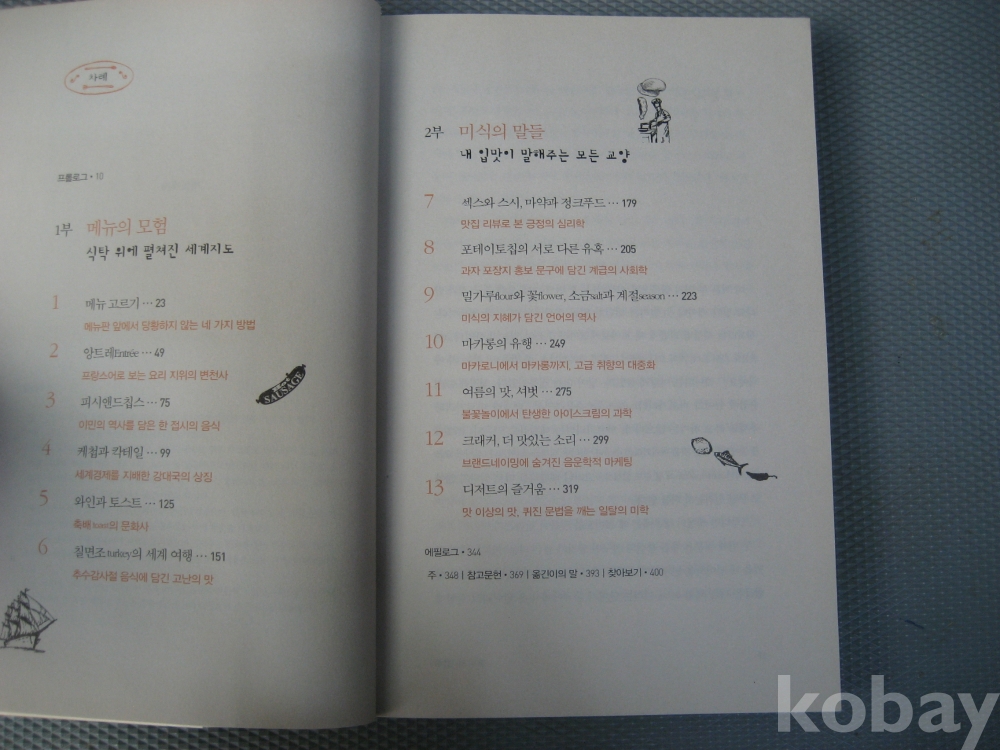 차례
프롤로그 • 10
1부 메뉴의 모험
식탁 위에 펼쳐진 세계지도
1 메뉴 고르기 … 23
메뉴판 앞에서 당황하지 않는 네 가지 방법
2 앙트레Entrée … 49
프랑스어로 보는 요리 지위의 변천사
SAUSAGE
3 피시앤드칩스 … 75
이민의 역사를 담은 한 접시의 음식
4 케첩과 칵테일 … 99
세계경제를 지배한 강대국의 상징
5 와인과 토스트 … 125
축배toast의 문화사
6 칠면조turkey의 세계 여행 … 151
추수감사절 음식에 담긴 고난의 맛
2부 미식의 말들
내 입맛이 말해주는 모든 교양
7 섹스와 스시, 마약과 정크푸드 … 179
맛집 리뷰로 본 긍정의 심리학
8 포테이토칩의 서로 다른 유혹 … 205
과자 포장지 홍보 문구에 담긴 계급의 사회학
9 밀가루flour와 꽃flower, 소금salt과 계절season … 223
미식의 지혜가 담긴 언어의 역사
10 마카롱의 유행 … 249
마카로니에서 마카롱까지, 고급 취향의 대중화
11 여름의 맛, 셔벗 … 275
불꽃놀이에서 탄생한 아이스크림의 과학
12 크래커, 더 맛있는 소리 … 299
브랜드네이밍에 숨겨진 음운학적 마케팅
13 디저트의 즐거움 … 319
맛 이상의 맛, 퀴진 문법을 깨는 일탈의 미학
에필로그 • 344
주 • 348 | 참고문헌 • 369 | 옮긴이의 말 • 393 | 찾아보기 • 400
kobay